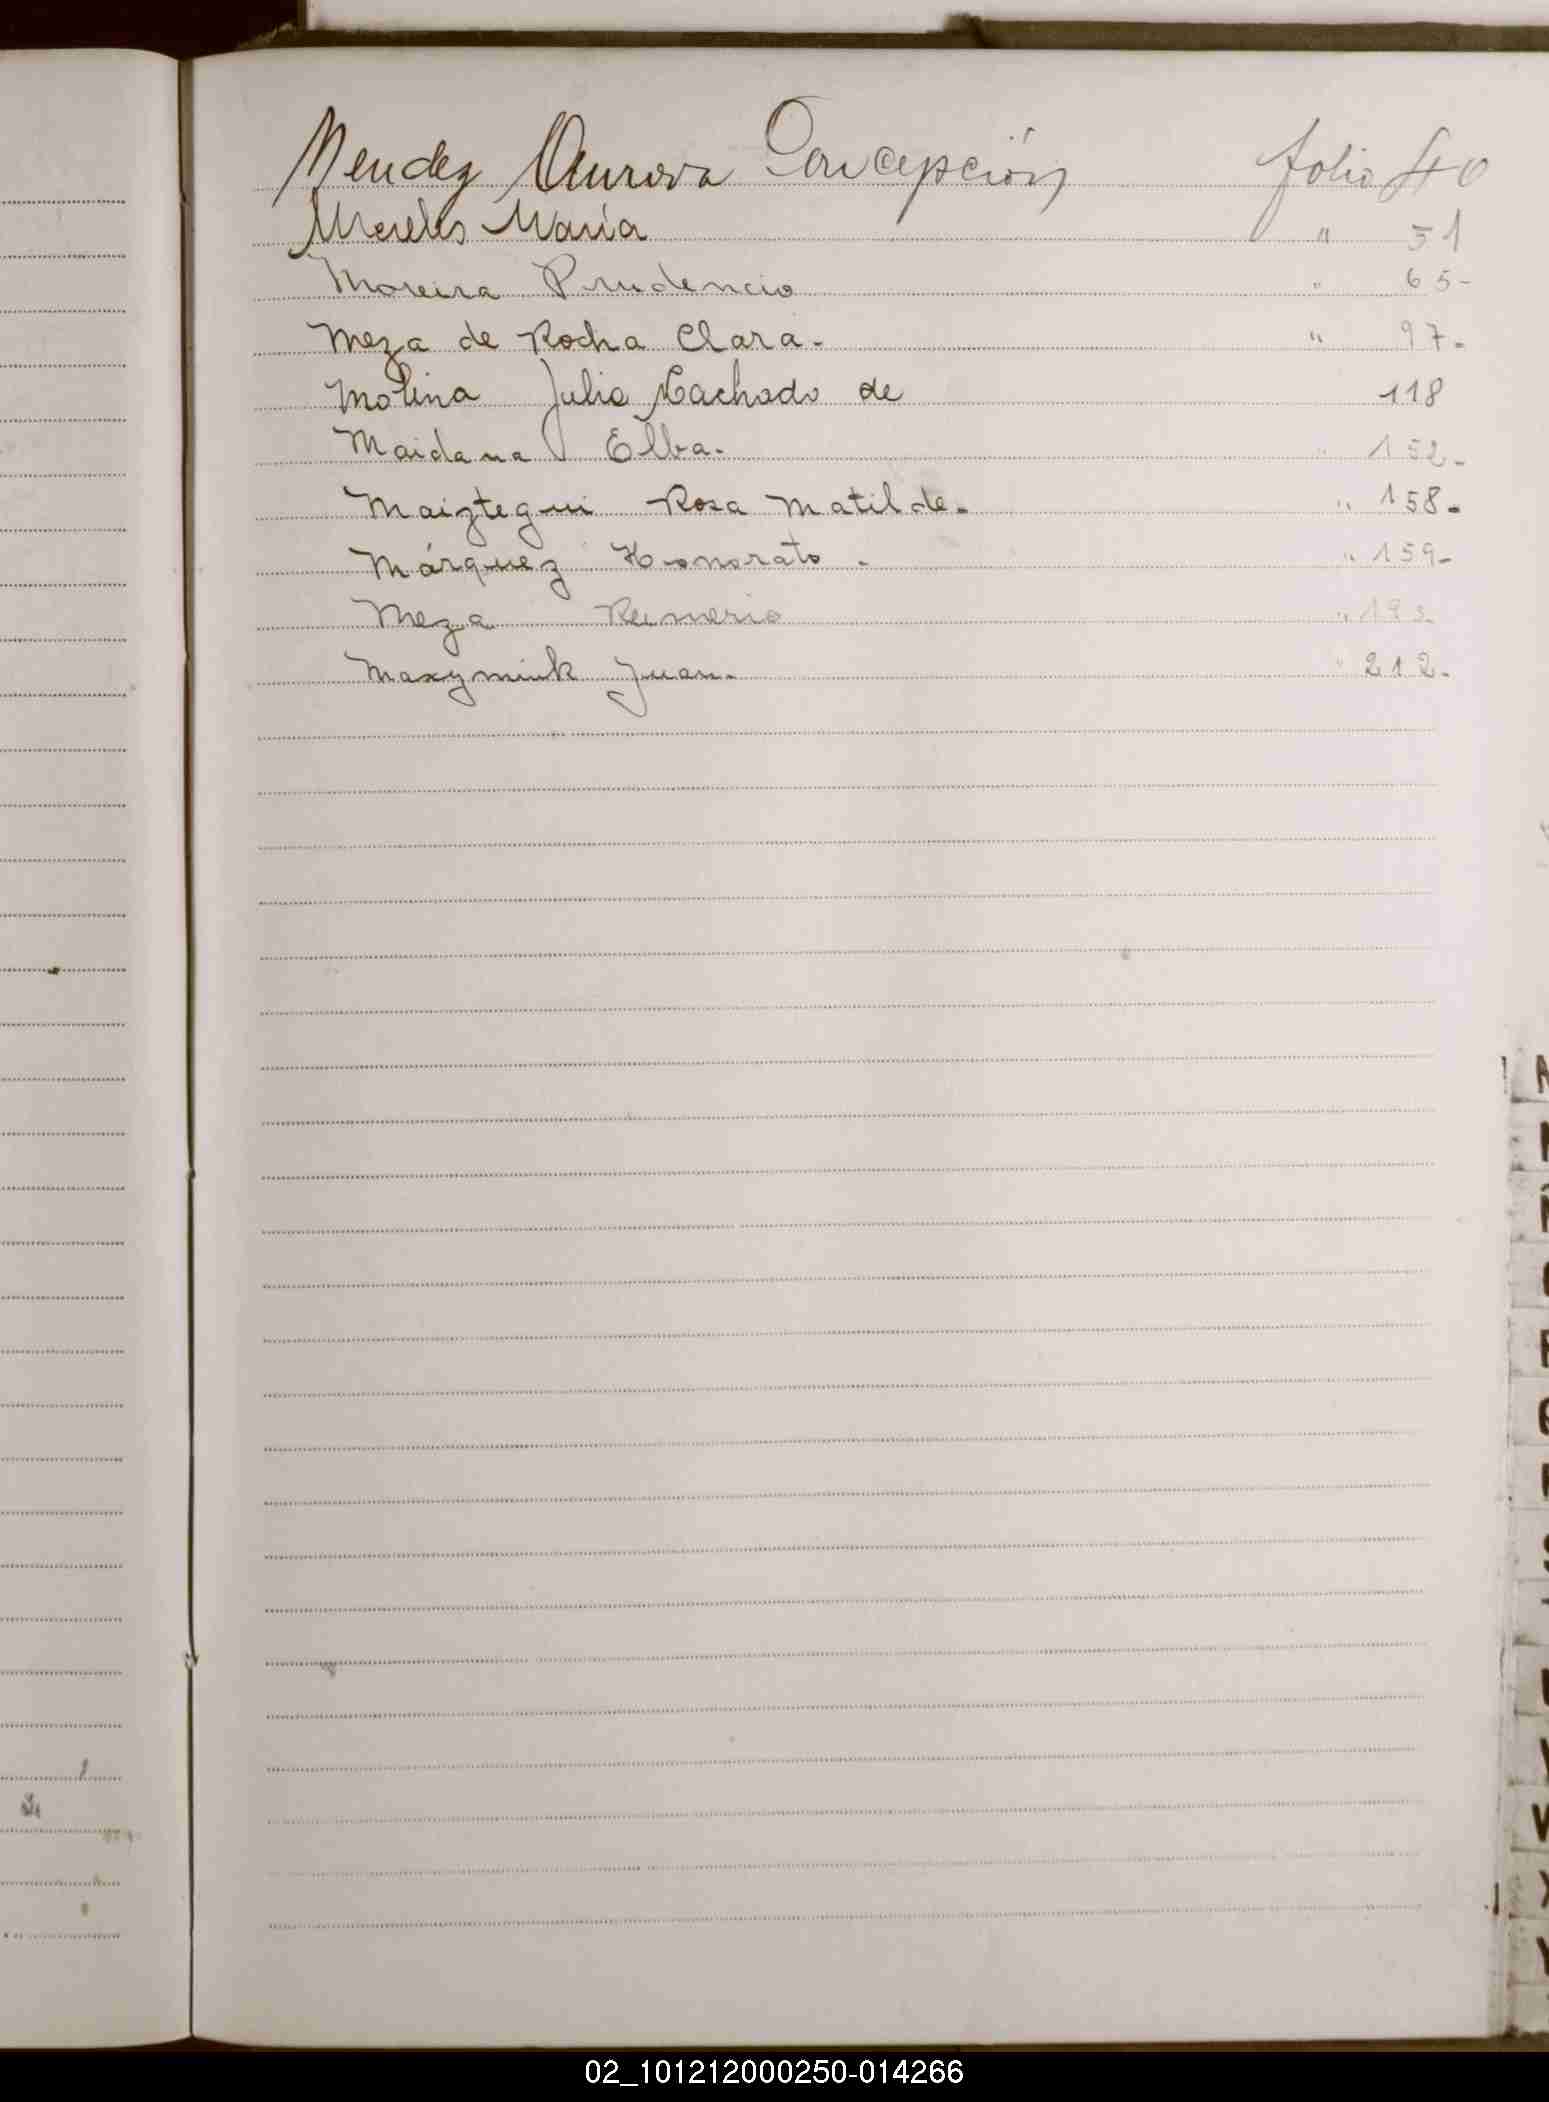 Mendez Aurora Concepción folio 40
Mereles María " 51
Moreira Prudencio " 65-
Meza de Rocha Clara. " 97-
Molina Julia Machado de 118
Maidana Elba. " 152-
Maiztegui Rosa Matilde. " 158-
Márquez Honorato. " 159-
Meza Remerio " 193-
Maxymiuk Juan. " 212-
02_101212000250-014266